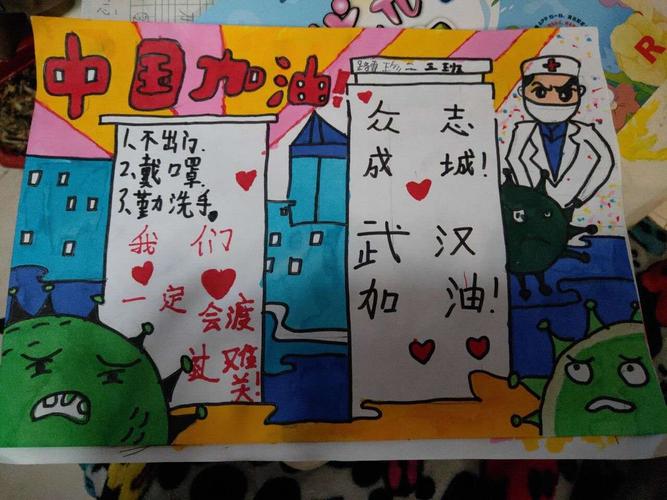 中国加油!
1.不出门.
2.戴口罩
3.勤洗手.
我们
一定
会渡
过难
关!
二 三班
众志
成城!
武汉
加油!
R